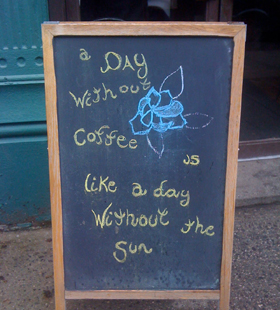 a DAY
Without
Coffee
is
like a day
Without the
Sun